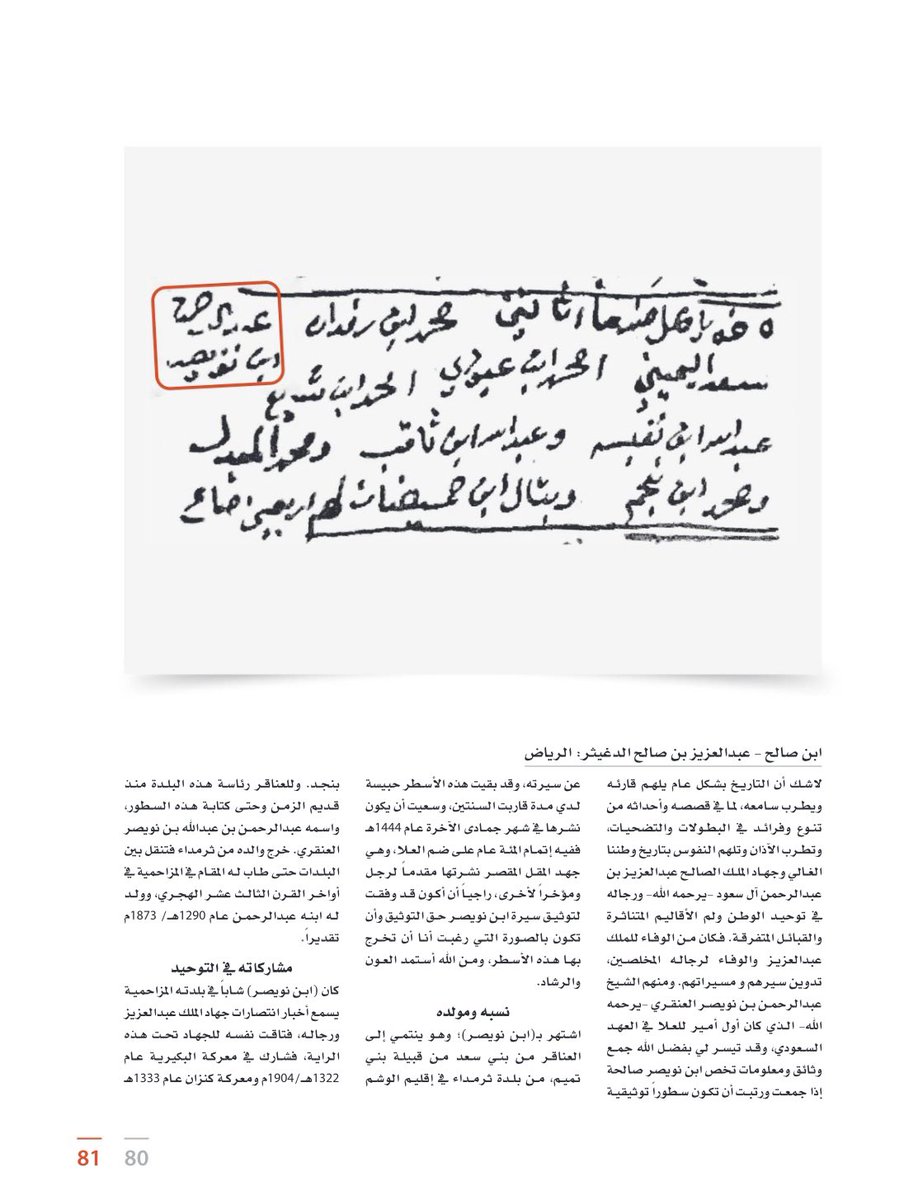 عبدالرحمن
ابن نويصر
سعد اليميني
عبدالله ابن نفيسه وعبدالله ابن ثاقب ومحمد المبدل
ومحمد ابن نجم
ابن صالح - عبدالعزيز بن صالح الدغيثر: الرياض
لاشك أن التاريخ بشكل عام يلهم قارئه
ويطرب سامعه، لما في قصصه وأحداثه من
تنوع وفرائد في البطولات والتضحيات،
وتطرب الآذان وتلهم النفوس بتاريخ وطننا
الغالي وجهاد الملك الصالح عبدالعزيز بن
عبدالرحمن آل سعود -يرحمه الله- ورجاله
في توحيد الوطن ولم الأقاليم المتناثرة
والقبائل المتفرقة. فكان من الوفاء للملك
عبدالعزيز والوفاء لرجاله المخلصين،
تدوين سيرهم و مسيراتهم. ومنهم الشيخ
عبدالرحمن بن نويصر العنقري -يرحمه
الله- الذي كان أول أمير للعلا في العهد
السعودي، وقد تيسر لي بفضل الله جمع
وثائق ومعلومات تخص ابن نويصر صالحة
إذا جمعت ورتبت أن تكون سطوراً توثيقية
عن سيرته، وقد بقيت هذه الأسطر حبيسة
لدي مدة قاربت السنتين، وسعيت أن يكون
نشرها في شهر جمادى الآخرة عام 1444هـ
ففيه إتمام المئة عام على ضم العلا، وهي
جهد المقل المقصر نشرتها مقدماً لرجل
ومؤخراً لأخرى، راجياً أن أكون قد وفقت
لتوثيق سيرة ابن نويصر حق التوثيق وأن
تكون بالصورة التي رغبت أنا أن تخرج
بها هذه الأسطر، ومن الله أستمد العون
والرشاد.
نسبه ومولده
اشتهر بـ(ابن نويصر)؛ وهو ينتمي إلى
العناقر من بني سعد من قبيلة بني
تميم، من بلدة ثرمداء في إقليم الوشم
بنجد. وللعناقر رئاسة هذه البلدة منذ
قديم الزمن وحتى كتابة هذه السطور،
واسمه عبدالرحمن بن عبدالله بن نويصر
العنقري. خرج والده من ثرمداء فتنقل بين
البلدات حتى طاب له المقام في المزاحمية في
أواخر القرن الثالث عشر الهجري، وولد
له ابنه عبدالرحمن عام 1290هـ/ 1873م
تقديراً.
مشاركاته في التوحيد
كان (ابن نويصر) شاباً في بلدته المزاحمية
يسمع أخبار انتصارات جهاد الملك عبدالعزيز
ورجاله، فتاقت نفسه للجهاد تحت هذه
الراية، فشارك في معركة البكيرية عام
1322هـ/1904م ومعركة كنزان عام 1333هـ
81 80